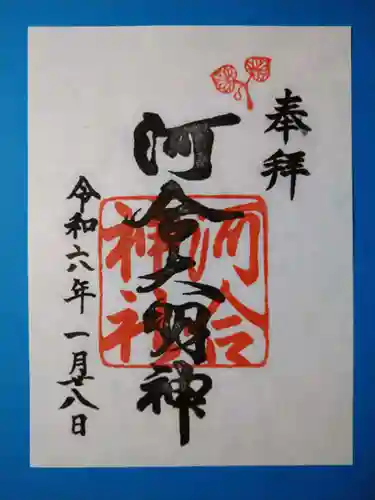 奉拝
河合大明神
河合神社
令和六年 一月廿八日